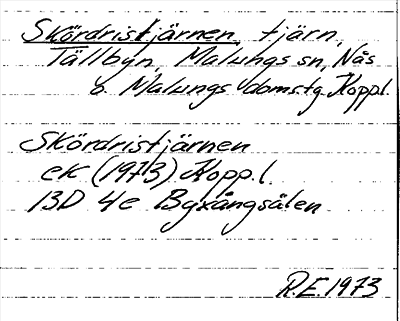 Skördristjärnen, tjärn,
Tällbyn, Malungs sn, Nås
o. Malungs domstg Koppl.
Skördristjärnen
ek (1973) Kopp.l.
13D 4e Byxångsälen
R.E. 1973